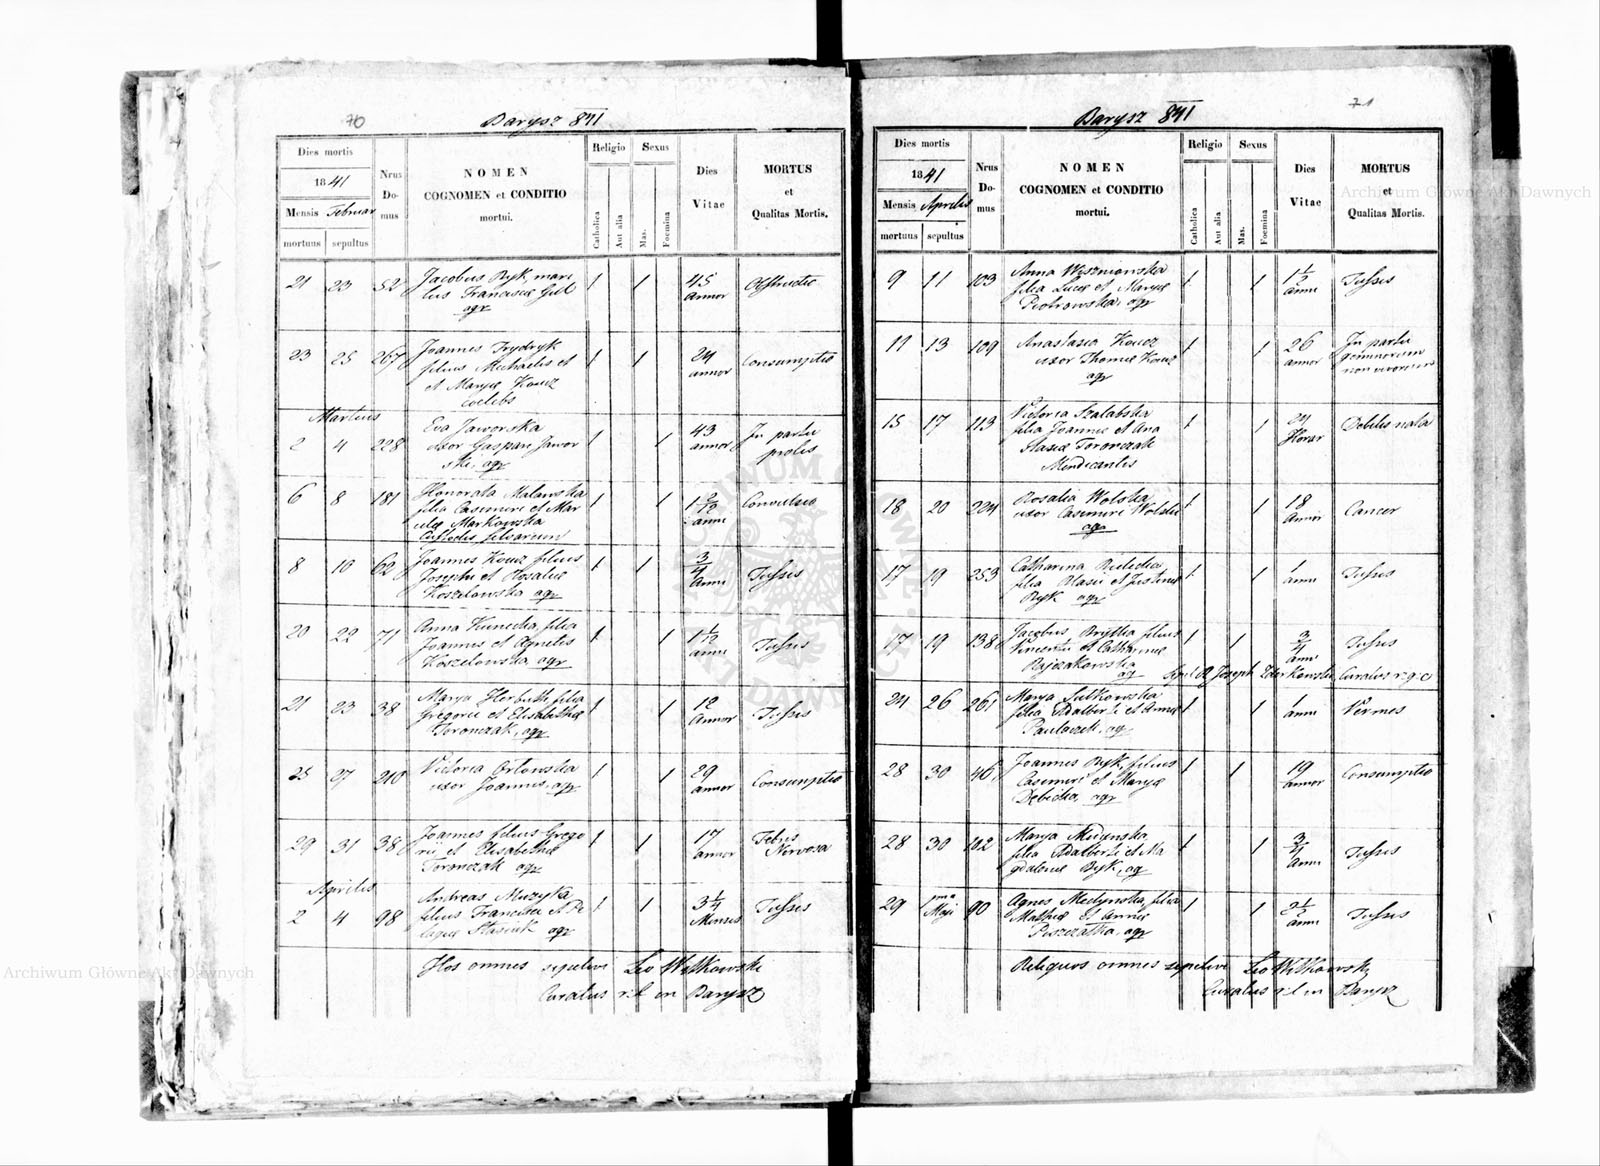 70
Barysz 841
Dies mortis
1841
Mensis Februar
mortuus sepultus
Nrus Do- mus
NOMEN
COGNOMEN et CONDITIO
mortui.
Religio
Catholica
Aut alia
Sexus
Mas.
Foemina
Dies
Vitae
MORTUS
et
Qualitas Mortis.
21 23 52 Jacobus Ryk, mari 1 1 45
tus Francisca annor
agr
23 25 267 Joannes 1 1 24 Consumptio
filius Michaelis et annor
et Marya Koucz
coelebs
Martius
2 4 228 Eva Jaworska 1 1 43 In partu
uxor Gaspari Jawor annor prolis
ski, agr
6 8 181 Honorata Malawska 1 1 1 2/12 Convulsio
filia Casimiri et Mar anni
Markowska
Custodis silvarum
8 10 62 Joannes Koucz filius 1 1 3/4 Tussis
Josephi et Rosaliae anni
Koszelowska agr
20 22 71 Anna Kunecka, filia 1 1 1 1/2 Tussis
Joannis et Agnetis anni
Koszelowska, agr
21 23 38 Marya filia 1 1 12 Tussis
Gregorii et Elisabetha annor
Toronczak, agr
25 27 210 Victoria Orlowska 1 1 29 Consumptio
uxor Joannis, agr annor
29 31 38 Joannes filius Grego 1 1 17 Febris
rii et Elisabetha annor Nervosa
Toronczak agr
Aprilis
2 4 98 Andreas Muzyka 1 1 3 1/4 Tussis
filius Francisci et Pe Menses
lagia Stasiuk agr
Hos omnes sepelivi Leo Witkowski
Curatus r.l. in Barysz
71
Barysz 841
Dies mortis
1841
Mensis Aprilis
mortuus sepultus
Nrus Do- mus
NOMEN
COGNOMEN et CONDITIO
mortui.
Religio
Catholica
Aut alia
Sexus
Mas.
Foemina
Dies
Vitae
MORTUS
et
Qualitas Mortis.
9 11 103 Anna Wiszniowska 1 1 1 1/2 Tussis
filia Lucae et Marya anni
Piotrowska, agr
11 13 109 Anastasia Koucz 1 1 26 In partu
uxor Thomae Koucz annor gemnorum
agr non
15 17 113 Victoria Szalabska 1 1 24 Debilis nata
filia Joannis et Ana Horar
stasia Toronczak
Mendicantis
18 20 224 Rosalia Wolska 1 1 18 Cancer
uxor Casimiri Wolski Annor
agr
17 19 253 Catharina 1 1 1 Tussis
filia Blasii et Justina anni
Ryk agr
17 19 138 Jacobus filius 1 1 3/4 Tussis
Vincentii et Catharina anni
agr Sepel. R. Joseph Curatus r.g.c.
24 26 261 Marya Sulkowska 1 1 1 Vermes
filia Adalberti et Anna anni
agr
28 30 46 Joannes Ryk, filius 1 1 19 Consumptio
Casimiri et Marya annor
Debicka, agr
28 30 102 Marya 1 1 3/4 Tussis
filia Adalberti et Ma anni
gdalena Ryk, agr
29 pma Maji 90 Agnes Medynska, filia 1 1 2 1/2 Tussis
Mathiae et Anna anni
agr
Reliquos omnes sepelivi Leo Witkowski
Curatus r.l. in Barysz
Archiwum Główne Akt Dawnych
Archiwum Główne Akt Dawnych